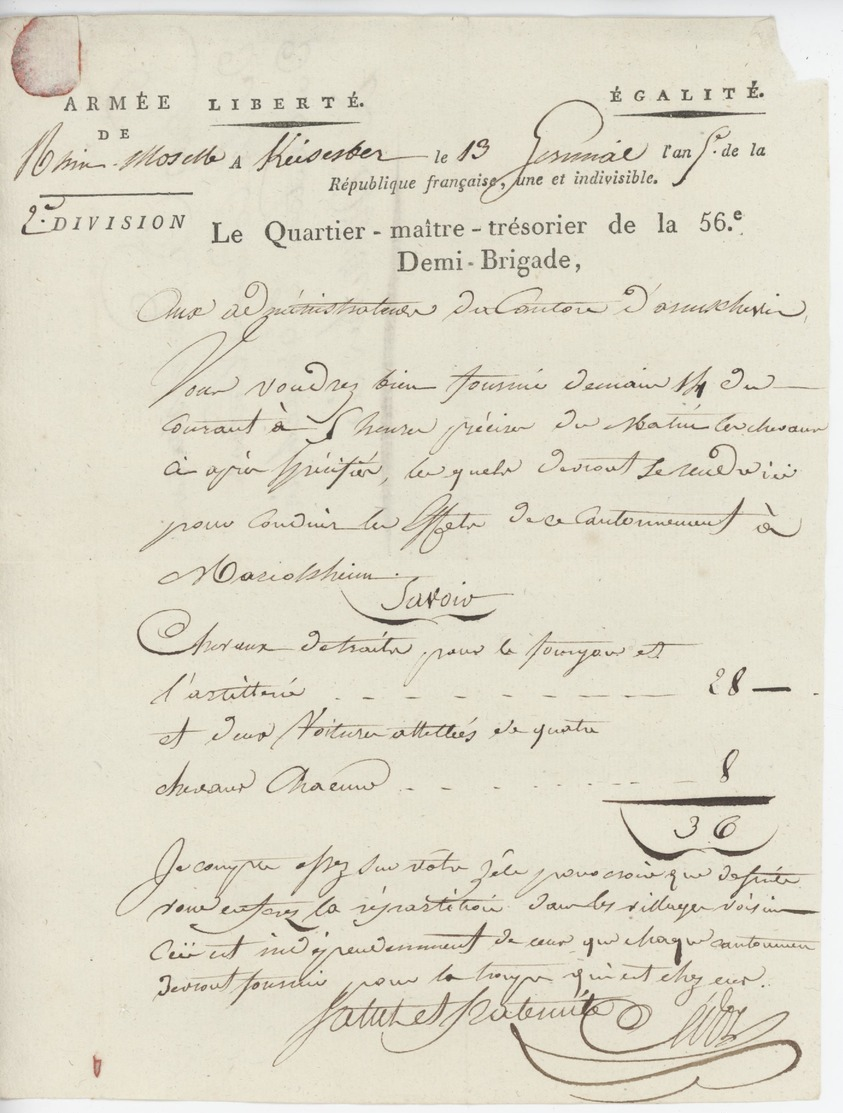 ARMÉE LIBERTÉ. ÉGALITÉ.
DE
Rhin-Moselle A le 13 Germinal l'an 5e. de la
République française, une et indivisible.
2e. DIVISION
Le Quartier-maître-trésorier de la 56.e
Demi-Brigade,
Aux administrateurs du Canton
Vous voudrez bien fournir demain 14 du
Courant à 5 heures précises du Matin les chevaux
Ci après spécifiés, les quels devront se rendre ici
pour Conduire les Effets de ce Cantonnement à
Savoir
Chevaux de traits pour le fourgon et
l'artillerie 28
et deux Voitures attellés de quatre
chevaux Chacune 8
36
Je compte assez sur votre zèle pour croire que de suite
vous en ferez la répartition dans les villages voisins
Ceci est indépendemment de ceux que chaque cantonnement
devront fournir pour la troupe qui est chez eux.
Salut et fraternité